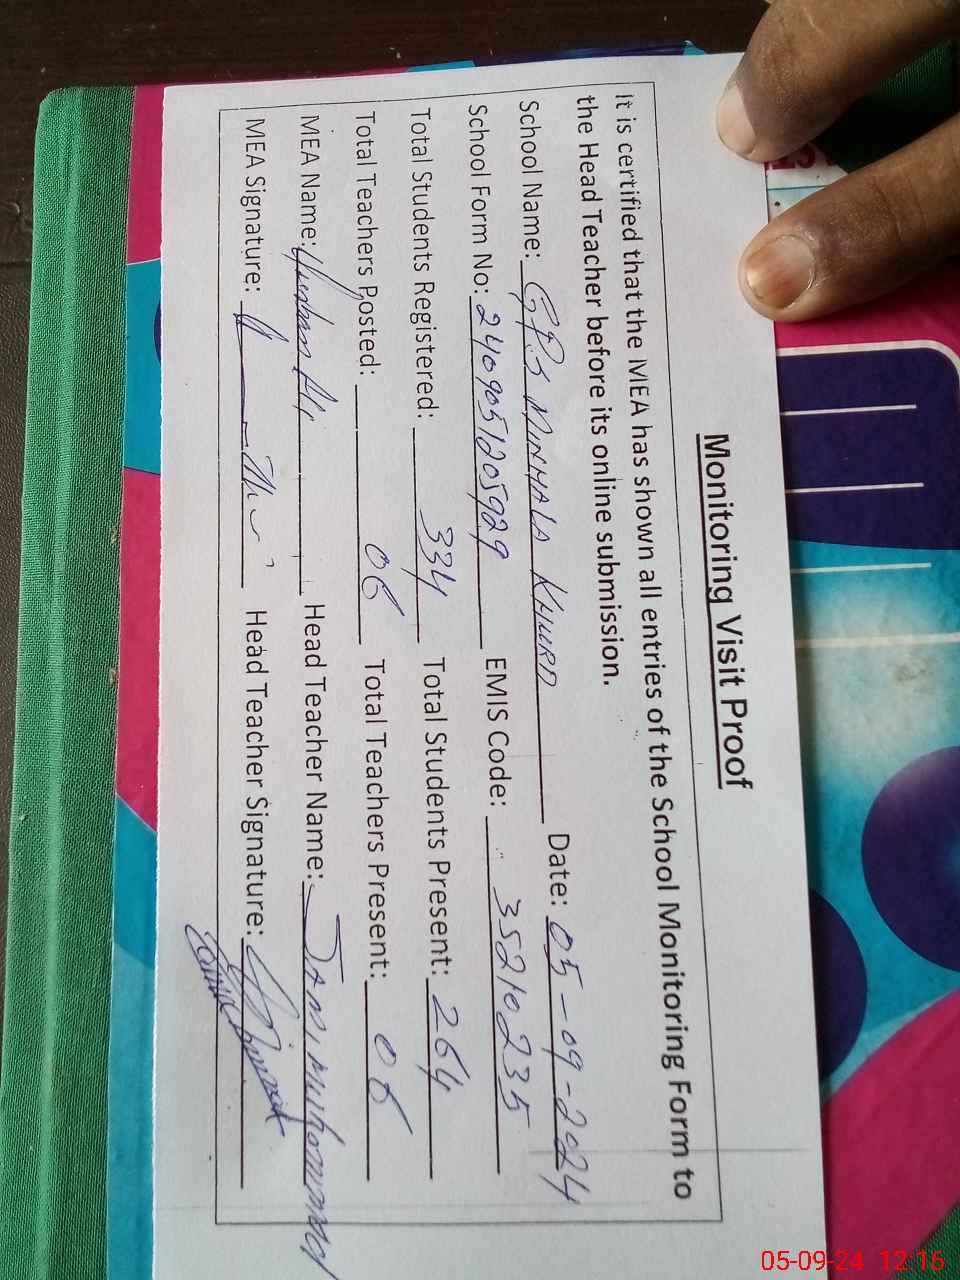 Monitoring Visit Proof
It is certified that the MEA has shown all entries of the School Monitoring Form to
the Head Teacher before its online submission.
School Name: GPS MINHALA KHURD Date: 05-09-2024
School Form No: 2409051205929 EMIS Code: 35210235
Total Students Registered: 334 Total Students Present: 264
Total Teachers Posted: 06 Total Teachers Present: 06
MEA Name: Ali Head Teacher Name: Muhammad
MEA Signature: Head Teacher Signature:
05-09-24 12:16